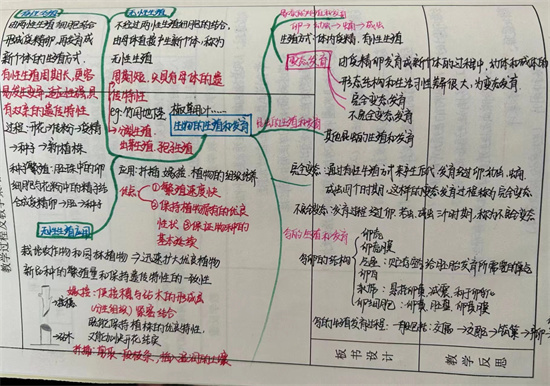 有性生殖
由两性生殖细胞结合
形成受精卵,再发育成
新个体的生殖方式
有性生殖周期长,更容
易发生变异,适应性强,具
有双亲的遗传特性
过程:开花→传粉→受精
→种子→新植株
种子繁殖:胚珠中的卵
细胞与花粉中的精子结
合成受精卵→胚→种子
无性生殖
不经过两性生殖细胞的结合,
由母体直接产生新个体,称为
无性生殖
周期短,只具有母体的遗
传特性
例:马铃薯、椒草叶……
分裂生殖
出芽生殖、孢子生殖
应用:扦插 嫁接 植物的组织培养
优点:①繁殖速度快
②保持植物原有的优良
性状 ③保证物种的
基本延续
无性生殖应用
栽培农作物和园林植物→迅速扩大优良植物
新品种的繁殖量和保持遗传特性的一致性
嫁接:使接穗与砧木的形成层
(分生组织)紧密结合
既能保持植株的优良特性,
又能加快开花结实
接穗
砧木
生物的生殖和发育
昆虫的生殖和发育
卵→幼虫→蛹→成虫
生殖方式:体内受精,有性生殖
变态发育
由受精卵发育成新个体的过程中,幼体和成体的
形态结构和生活习性差异很大,为变态发育
完全变态发育
不完全变态发育
其他昆虫的生殖和发育
完全变态:通过有性生殖方式来产生后代,发育经过卵、幼虫、蛹、
成虫四个时期,这样的变态发育过程称为完全变态
不完全变态:发育过程经过卵、若虫、成虫三个时期,称为不完全变态
鸟的生殖和发育
鸟卵的结构
卵壳
卵壳膜
卵白
系带
卵细胞:卵黄、胚盘、卵黄膜
板书设计
教学反思
教学过程及教学策